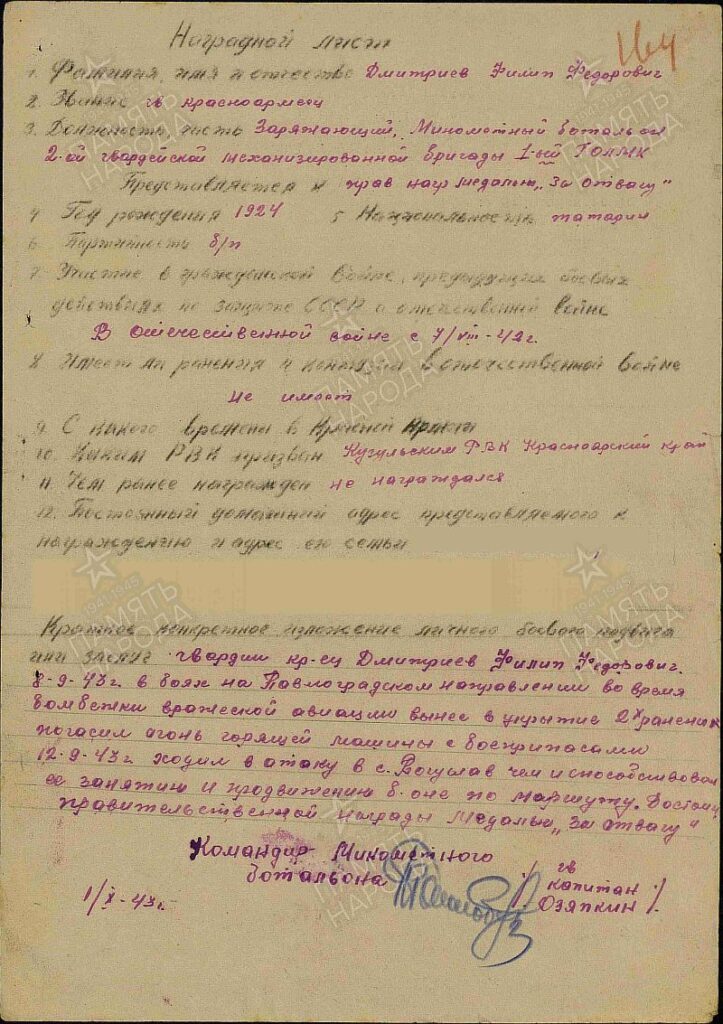 164
Наградной лист
1. Фамилия, имя и отчество Дмитриев Филип Федорович
2. Звание гв красноармеец
3. Должность, часть Заряжающий, Минометный батальон
2-ой гвардейской механизированной бригады 1-ый
Представляется к прав наг медалью „За отвагу"
4 Год рождения 1924 5 Национальность татарин
6 Партийность б/п
7 Участие в гражданской войне, предыдущих боевых
действиях по защите СССР и отечественной войне
В отечественной войне с 7/VIII-42г.
8 Имеет ли ранения и контузии в отечественной войне
не имеет
9 С какого времени в Красной Армии
10. Каким РВК призван РВК Красноарский край
11 Чем ранее награжден не награждался
12. Постоянный домашний адрес представляемого к
награждению и адрес его семьи
Краткое конкретное изложение личного боевого подвига
или заслуг гвардии кр-ец Дмитриев Филип Федорович.
8-9-43г. в боях на Павлоградском направлении во время
бомбежки вражеской авиации вынес в укрытие 2х
погасил огонь горящей машины с боеприпасами
12-9-43г. ходил в атаку в с. чем и способствовал
ее занятию и продвижению б-она по маршуту. Достоин
правительственной награды медалью „За отвагу"
Командир Минометного
батальона
гв
капитан
Озяпкин
1/X-43г.
ПАМЯТЬ
НАРОДА
1941-1945